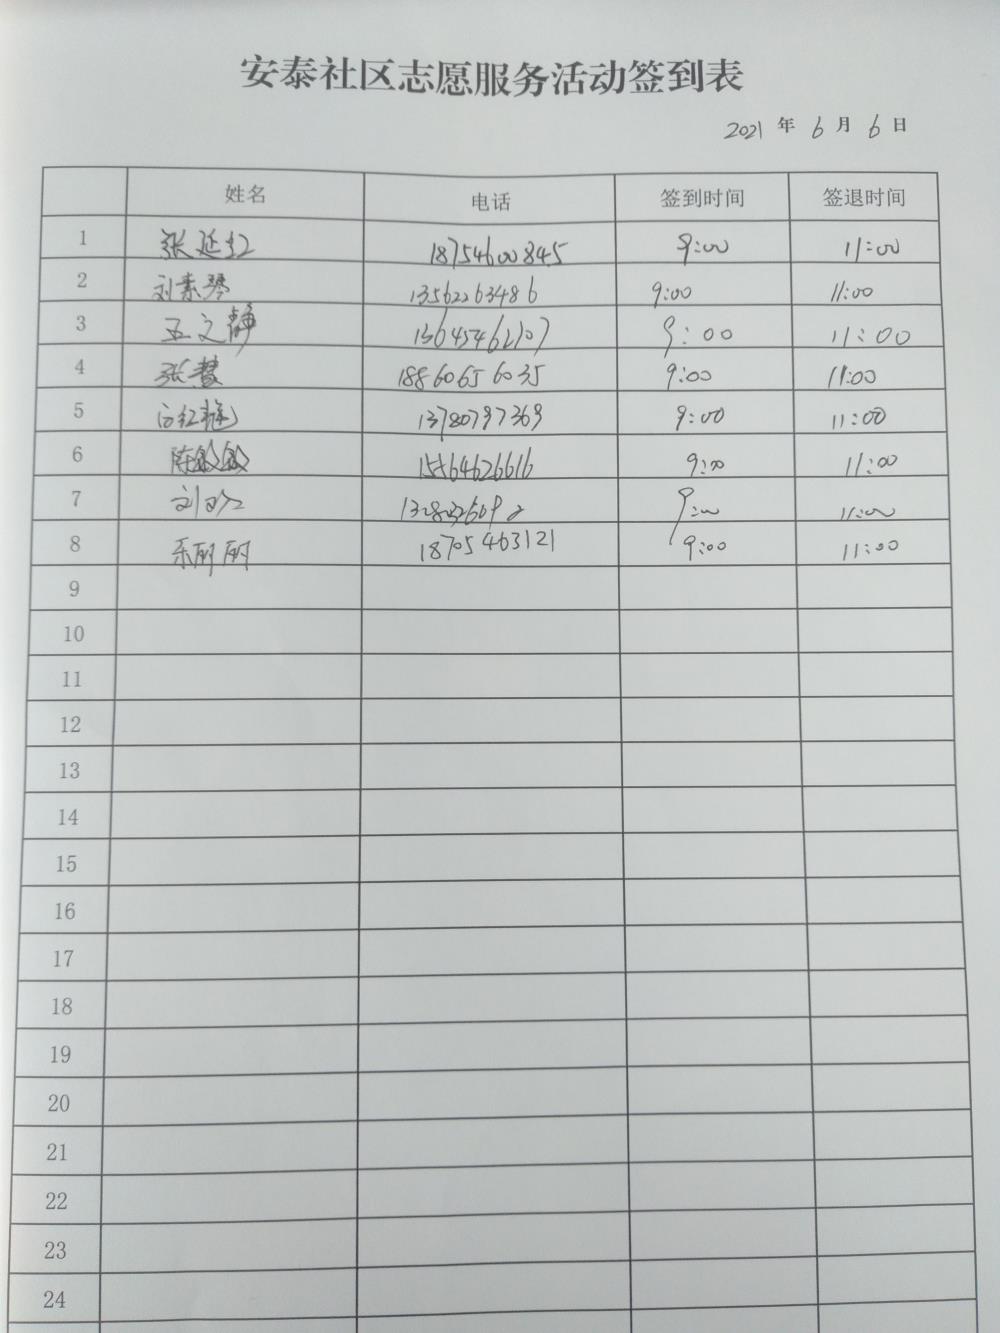 安泰社区志愿服务活动签到表
2021 年 6 月 6 日
姓名 电话 签到时间 签退时间
1 张延红 18754600845 9:00 11:00
2 刘素琴 13562263486 9:00 11:00
3 王文静 9:00 11:00
4 张慧 18860656035 9:00 11:00
5 13780797369 9:00 11:00
6 陈敏敏 9:00 11:00
7 9:00 11:00
8 乐丽丽 18705463121 9:00 11:00
9
10
11
12
13
14
15
16
17
18
19
20
21
22
23
24